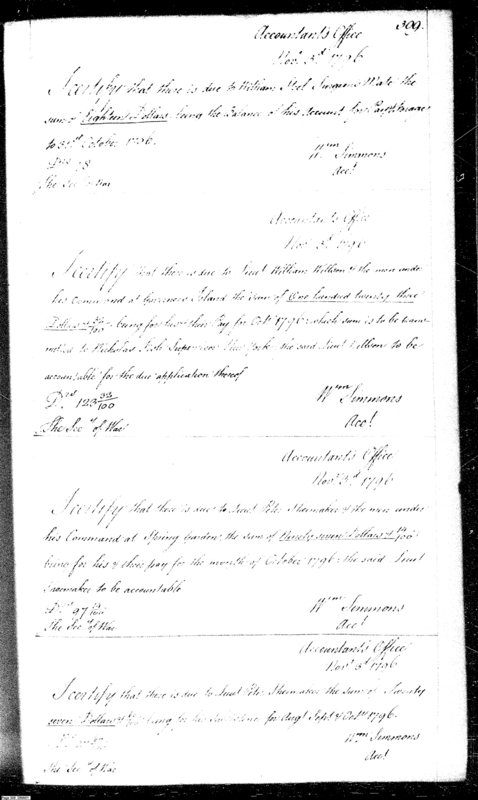 309.
Accountant's Office
Nov.r 3.d 1796
I certify that there is due to William Steel Surgeons Mate the
sum of Eighteen Dollars, being the Balance of his Account for Pay & Forage
to 31st October 1796.
D.rs 18
The Sec.y of War
Wm Simmons
Acct
Accountant's Office
Nov.r 3.d 1796
I certify that there is due to Lieut William Wilson & the men under
his Command at Governors Island the sum of One hundred twenty three
Dollars & 33/100 being for his & their Pay for Octr 1796, which sum is to be trans
mitted to Nicholas Fish Supervisor New York the said Lieut Wilson to be
accountable for the due application thereof
D.rs 123 33/100
The Sec.y of War
Wm Simmons
Acct
Accountant's Office
Nov.r 3.d 1796
I certify that there is due to Lieut Peter Shoemaker & the men under
his Command at Spring Garden, the sum of Ninety seven Dollars &
being for his & their pay for the month of October 1796, the said Lieut
Shoemaker to be accountable
97
The Sec.y of War
Wm Simmons
Acct
Accountant's Office
Nov.r 3.d 1796
I certify that there is due to Lieut Peter Shoemaker the sum of Twenty
seven Dollars & being for his Subsistence for Augt Sept & Octr 1796.
The Sec.y of War
Wm Simmons
Acct